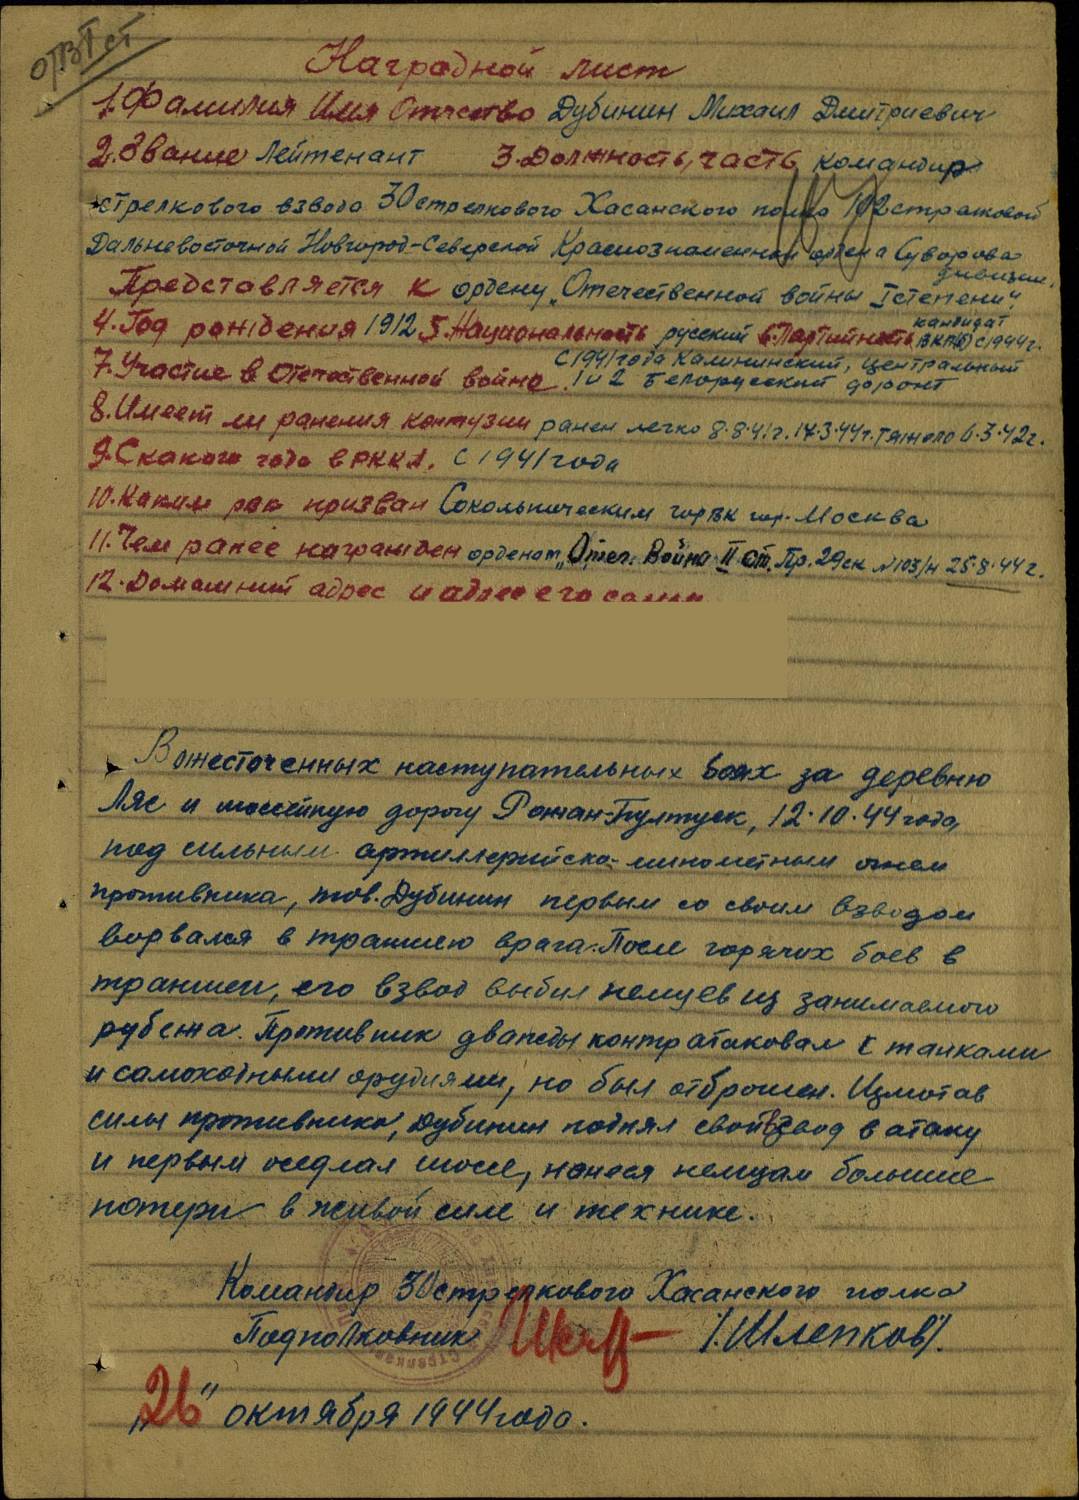 ОТВ I ст
Наградной лист
1. Фамилия Имя Отчество Дубинин Михаил Дмитриевич
2. Звание Лейтенант 3. Должность, часть командир
стрелкового взвода 30 стрелкового Хасанского полка 102 стрелковой
Дальневосточной Новгород-Северской Краснознаменной ордена Суворова
дивизии.
Представляется к ордену „Отечественной войны I степени".
4. Год рождения 1912 5. Национальность русский 6. Партийность кандидат
ВКП(б) с 1944 г.
7. Участие в Отечественной войне с 1941 года Калининский, Центральный
1 и 2 Белорусский фронт
8. Имеет ли ранения контузии ранен легко 8.8.41 г. 17.3.44 г. тяжело 6.3.42 г.
9. С какого года в РККА. с 1941 года
10. Каким рвк призван Сокольническим горвк гор. Москва
11. Чем ранее награжден орденом „Отеч. Война II ст. Пр. 29 ск №103/н 25.8.44 г.
12. Домашний адрес и адрес его семьи
В ожесточенных наступательных боях за деревню
Ляс и шоссейную дорогу Рожан-Пултуск, 12.10.44 года,
под сильным артиллерийско-минометным огнем
противника, тов. Дубинин первым со своим взводом
ворвался в траншею врага. После горячих боев в
траншеи, его взвод выбил немцев из занимаемого
рубежа. Противник дважды контратаковал с танками
и самоходными орудиями, но был отброшен. Измотав
силы противника, Дубинин поднял свой взвод в атаку
и первым оседлал шоссе, нанеся немцам большие
потери в живой силе и технике.
Командир 30 стрелкового Хасанского полка
Подполковник /Шлепков/.
„26" октября 1944 года.